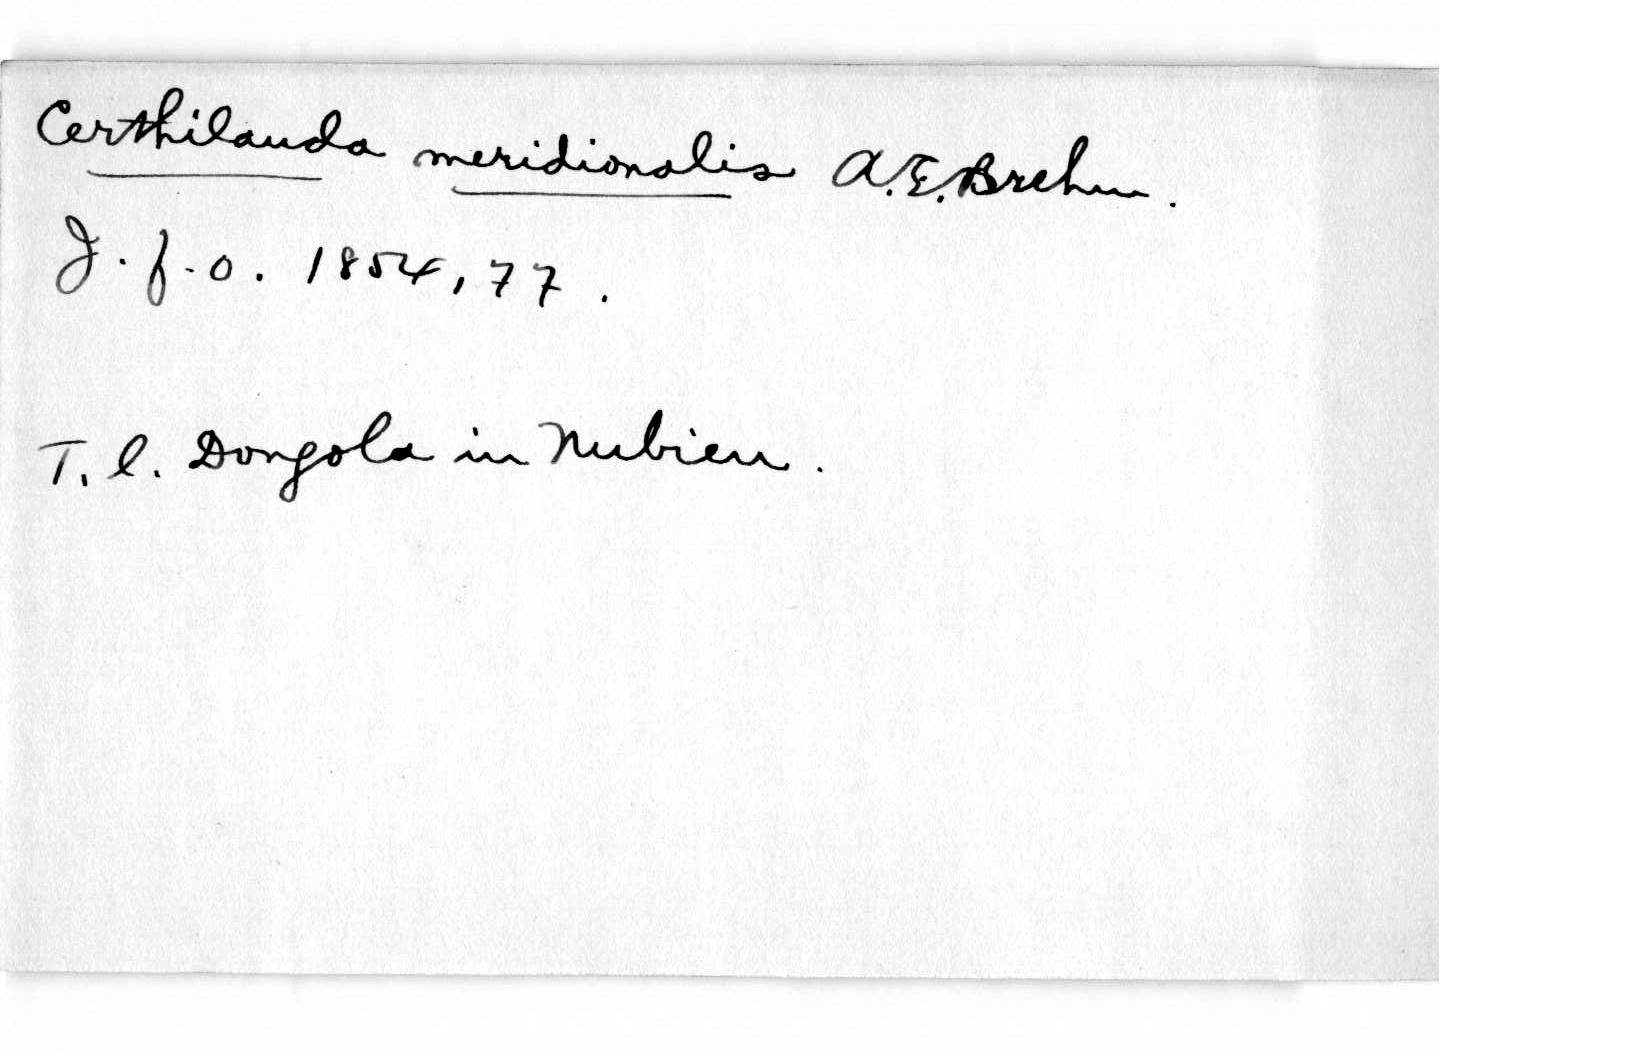 Certhilauda meridionalis A.E. Brehm.
J. f. o. 1854, 77.
T. l. Dongola in Nubien.